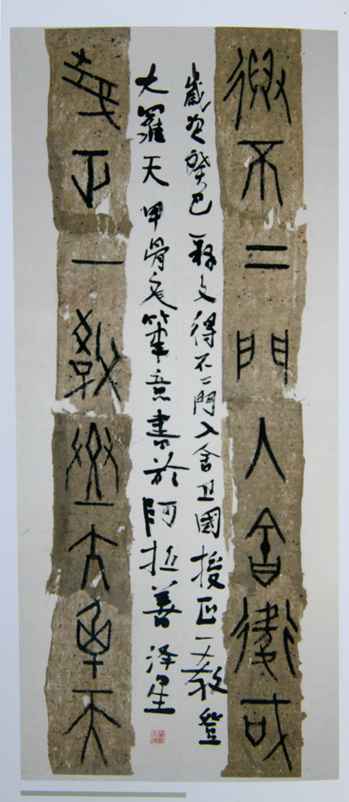 得不二門入舍衛國
歲次癸巳 釋文得不二門入舍卫國授正一教登
大羅天 甲骨文筆意書於阿拉善 泽星
授正一教登大羅天